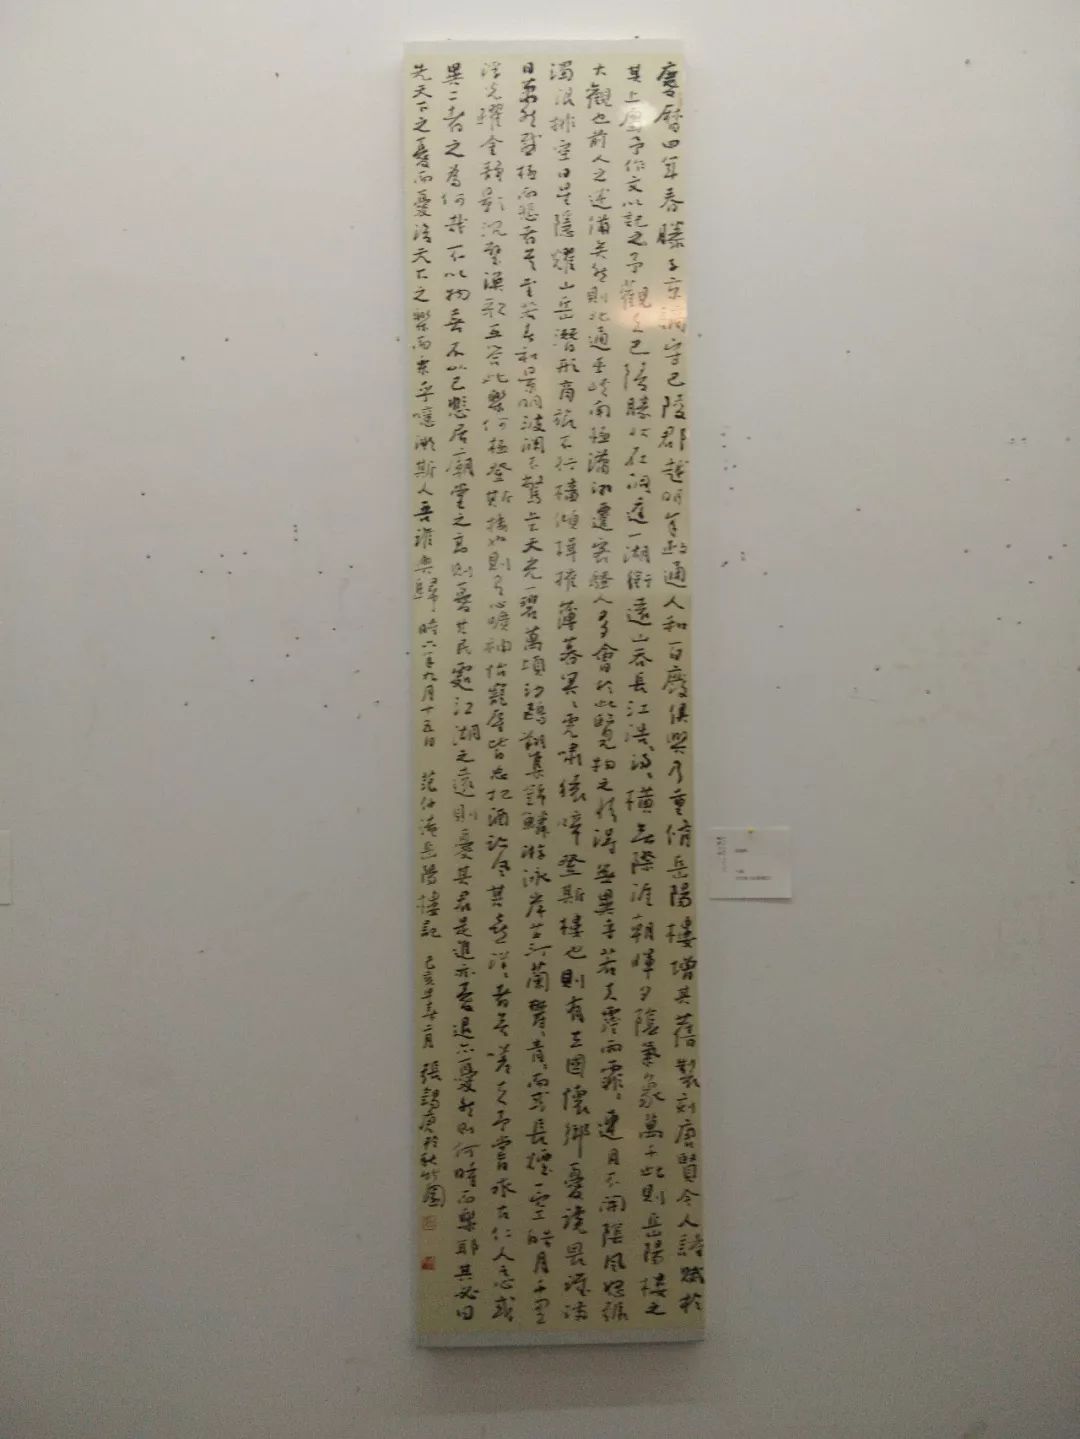 慶曆四年春滕子京謫守巴陵郡越明年政通人和百廢俱興乃重脩岳陽樓增其舊製刻唐賢今人詩賦於
其上屬予作文以記之予觀夫巴陵勝狀在洞庭一湖銜遠山吞長江浩浩湯湯橫無際涯朝暉夕陰氣象萬千此則岳陽樓之
大觀也前人之述備矣然則北通巫峽南極瀟湘遷客騷人多會於此覽物之情得無異乎若夫霪雨霏霏連月不開陰風怒號
濁浪排空日星隱耀山岳潛形商旅不行檣傾楫摧薄暮冥冥虎嘯猿啼登斯樓也則有去國懷鄉憂讒畏譏滿
目蕭然感極而悲者矣至若春和景明波瀾不驚上下天光一碧萬頃沙鷗翔集錦鱗游泳岸芷汀蘭鬱鬱青青而或長煙一空皓月千里
浮光躍金靜影沉璧漁歌互答此樂何極登斯樓也則有心曠神怡寵辱皆忘把酒臨風其喜洋洋者矣嗟夫予嘗求古仁人之心或
異二者之為何哉不以物喜不以己悲居廟堂之高則憂其民處江湖之遠則憂其君是進亦憂退亦憂然則何時而樂耶其必曰
先天下之憂而憂後天下之樂而樂乎噫微斯人吾誰與歸 時六年九月十五日 范仲淹岳陽樓記 己亥年春二月 張錫庚於秋竹園